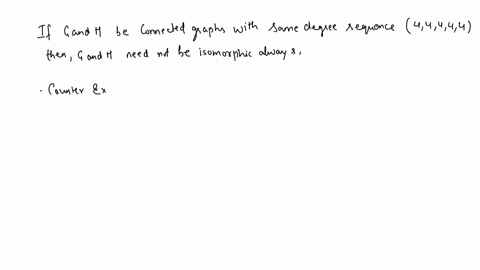 If G and H be Connected graphs with same degree sequence (4,4,4,4,4)
then, G and H need not be isomorphic always.
· Counter Ex